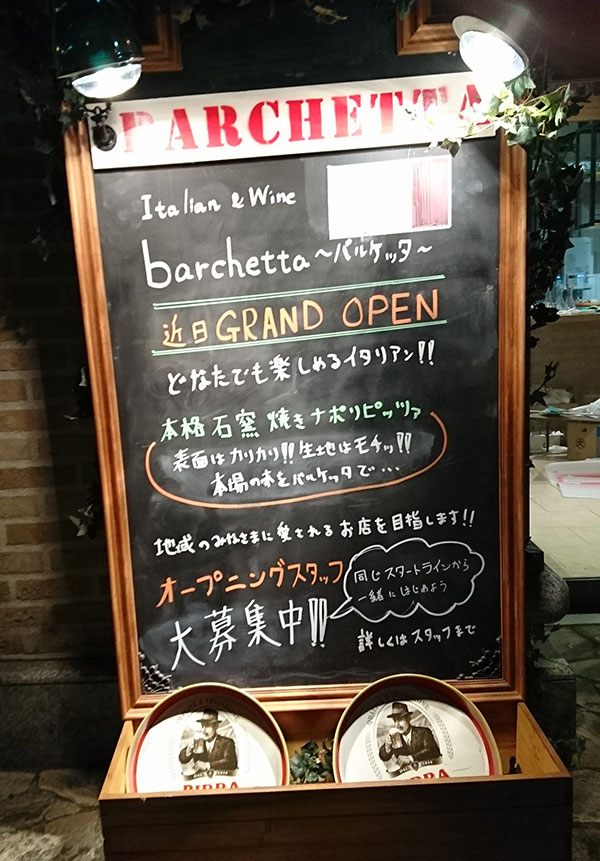 BARCHETTA
Italian & Wine
barchetta～バルケッタ～
近日GRAND OPEN
どなたでも楽しめるイタリアン!!
本格石窯焼きナポリピッツァ
表面はカリカリ!! 生地はモチッ!!
本場の味をバルケッタで…
地域のみなさまに愛されるお店を目指します!!
オープニングスタッフ
大募集中!!
同じスタートラインから
一緒にはじめよう
詳しくはスタッフまで
BIRRA
BIRRA